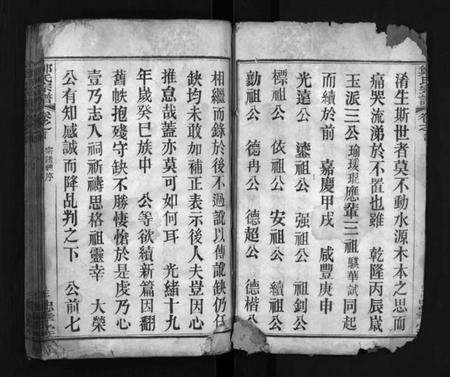 淆生斯世者莫不動水源木本之思而
痛哭流涕於不置也雖 乾隆丙辰歲
玉派三公瑜璞琨應輩三祖騏華試同起
而續於前 嘉慶甲戌 咸豐庚申
光遠公 遠祖公 强祖公 祖釗公
標祖公 依祖公 安祖公 續祖公
勳祖公 德冉公 德超公 德楷公
相繼而錄於後不過說以傳訛缺仍仁
缺均未敢如補正表示後人夫豈因心
推息哉蓋亦莫可如何耳 光緒十九
年歲癸巳族中 公等欲續新篇因翻
舊帙抱殘守缺不勝悽愴於是虔乃心
壹乃志入祠祈禱思格祖靈幸 大榮
公有知感誠而降乩判之下 公前七
宗譜
序